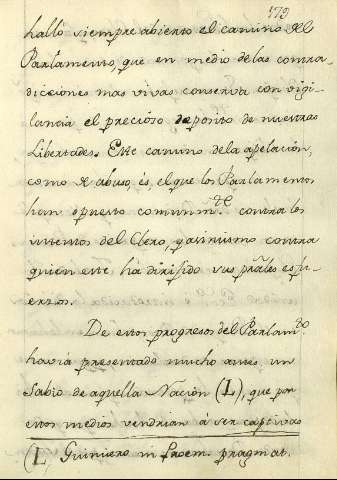 179
halló siempre abierto el camino del
Parlamento, que en medio de las contra-
dicciones mas vivas conserva con vigi-
lancia el precioso deposito de nuestras
Libertades. Este camino dela apelacion,
como de abuso, és, el que los Parlamentos
han opuesto comunm.te contra los
intentos del Clero, y asimismo contra
quien este ha dirijido sus prales esfu-
erzos.
De estos progresos del Parlam.to
havia presentado mucho antes un
Sabio de aquella Nación (L), que por
estos medios vendrian á ser captivas
(L) Guiniero in Proem. pragmat.